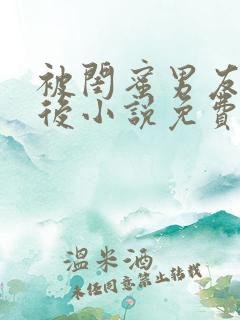 被閨蜜男友
後小說免費
溫米酒
未任同意禁止转载